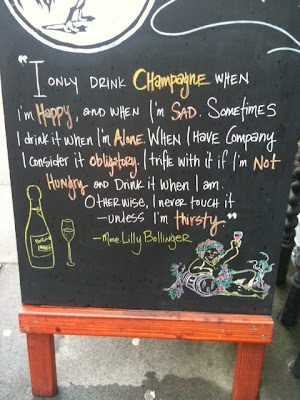 "I only drink Champagne when
i'm Happy, and when I'm Sad. Sometimes
I drink it when I'm Alone. When I Have Company
I consider it Obligatory. I trifle with it if I'm Not
Hungry and Drink it when I am.
Otherwise, I never touch it
—unless I'm thirsty."
—Mme. Lilly Bollinger